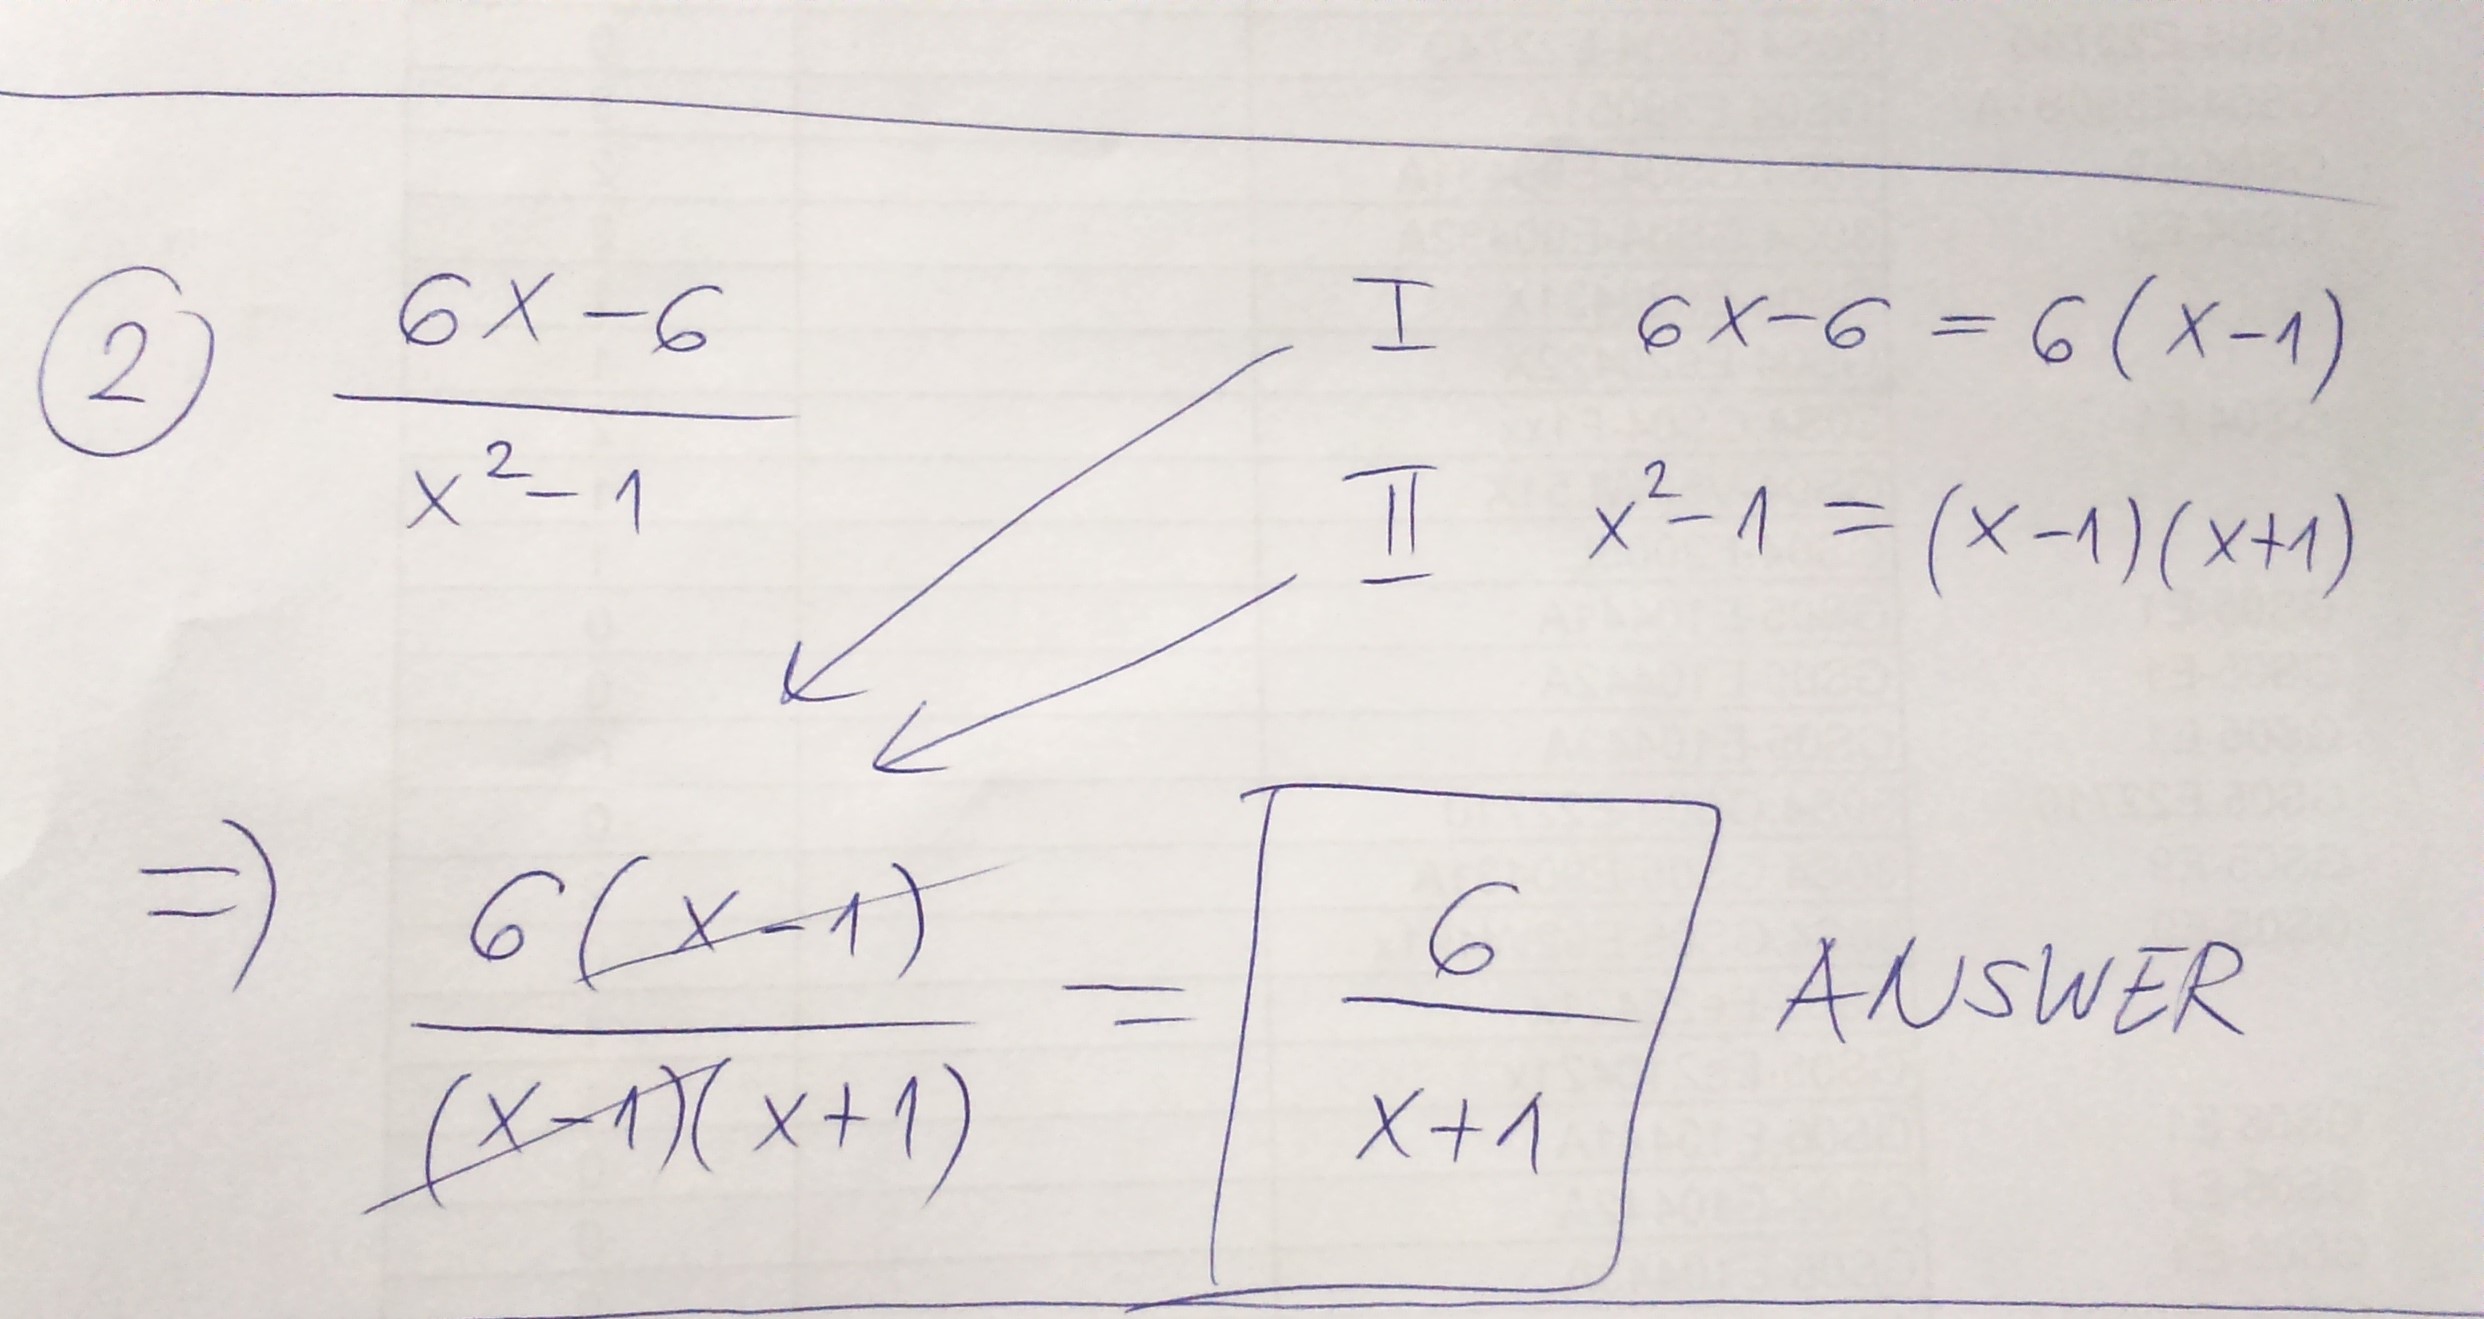 ② (6x-6)/(x²-1)
I 6x-6 = 6(x-1)
II x²-1 = (x-1)(x+1)
=> 6(x-1)/((x-1)(x+1)) = 6/(x+1) ANSWER